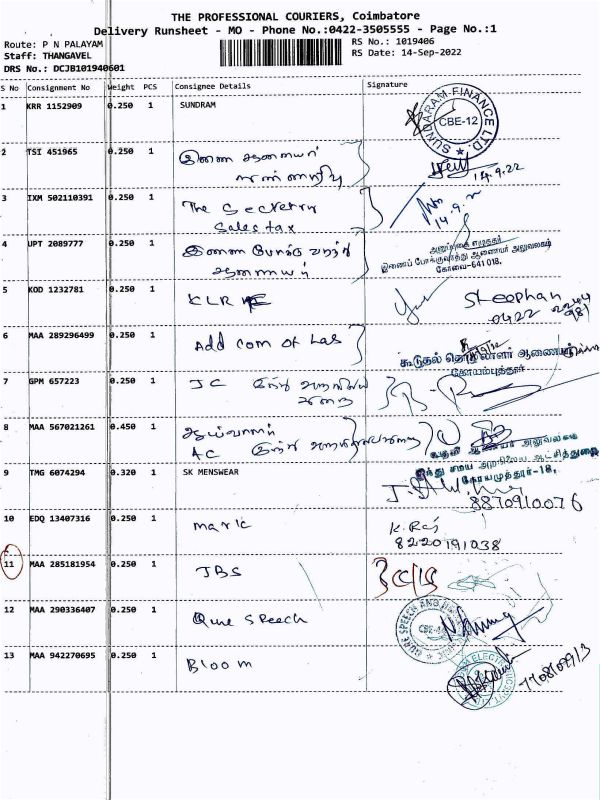 THE PROFESSIONAL COURIERS, Coimbatore
Delivery Runsheet - MO - Phone No.:0422-3505555 - Page No.:1
Route: P N PALAYAM
RS No.: 1019406
Staff: THANGAVEL
RS Date: 14-Sep-2022
DRS No.: DCJB101940601
S No Consignment No Weight PCS Consignee Details Signature
1 KRR 1152909 0.250 1 SUNDRAM
SUNDARAM FINANCE LTD. CBE-12
2 TSI 451965 0.250 1 இணை ஆணையர்
14.9.22
3 IXM 502110391 0.250 1 The Secretary
Sales tax
14.9.
4 UPT 2089777 0.250 1 இணை போக்கு வரத்து
ஆணையர்
அலுவலகம்
இணைப் போக்குவரத்து ஆணையர் அலுவலகம்
கோவை-641018.
5 KOD 1232781 0.250 1 KLR
Steephan
0422 2244
981
6 MAA 289296499 0.250 1 Add com of Lab
கூடுதல் தொழிலாளர் ஆணையர்
கோயம்புத்தூர்
7 GPM 657223 0.250 1 JC இந்து அறநிலைய
துறை
8 MAA 567021261 0.450 1 ஆய்வாளர்
AC இந்து அறநிலையத்துறை
உதவி ஆணையர் அலுவலகம்
இந்து சமய அறநிலைய ஆட்சித்துறை
கோயமுத்தூர்-18.
9 TMG 6074294 0.320 1 SK MENSWEAR
8870910076
10 EDQ 13407316 0.250 1 Maric
K. Raj
8220191038
11 MAA 285181954 0.250 1 JBS
12 MAA 290336407 0.250 1 Qure Speech
QURE SPEECH AND CBE
13 MAA 942270695 0.250 1 Bloom
ELECTRONICS